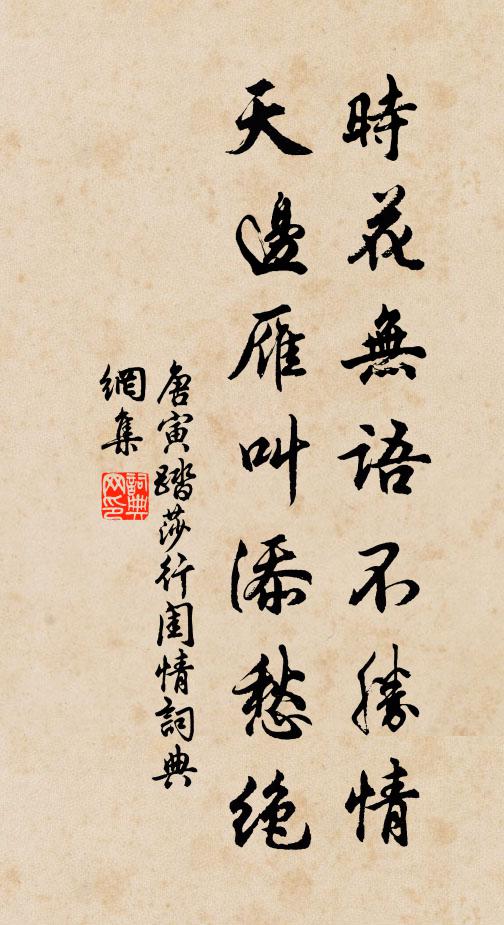 時花無語不勝情
天邊雁叫添愁絶
唐寅踏莎行閨情詞典
網集
詞典
网印